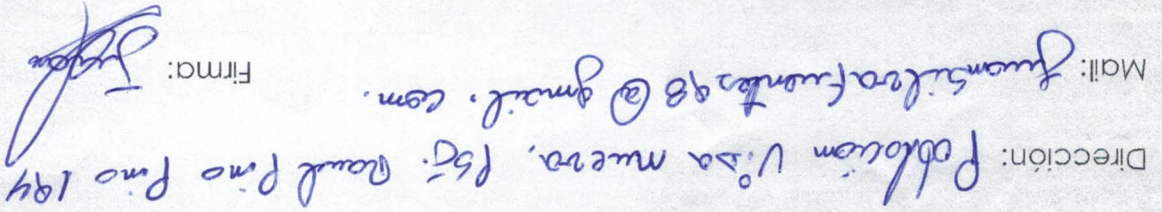 Dirección: Población Vida nueva, psje. Raul Pino Pino 194
Mail: JuanSilvaFuentes98@gmail.com. Firma: Juan